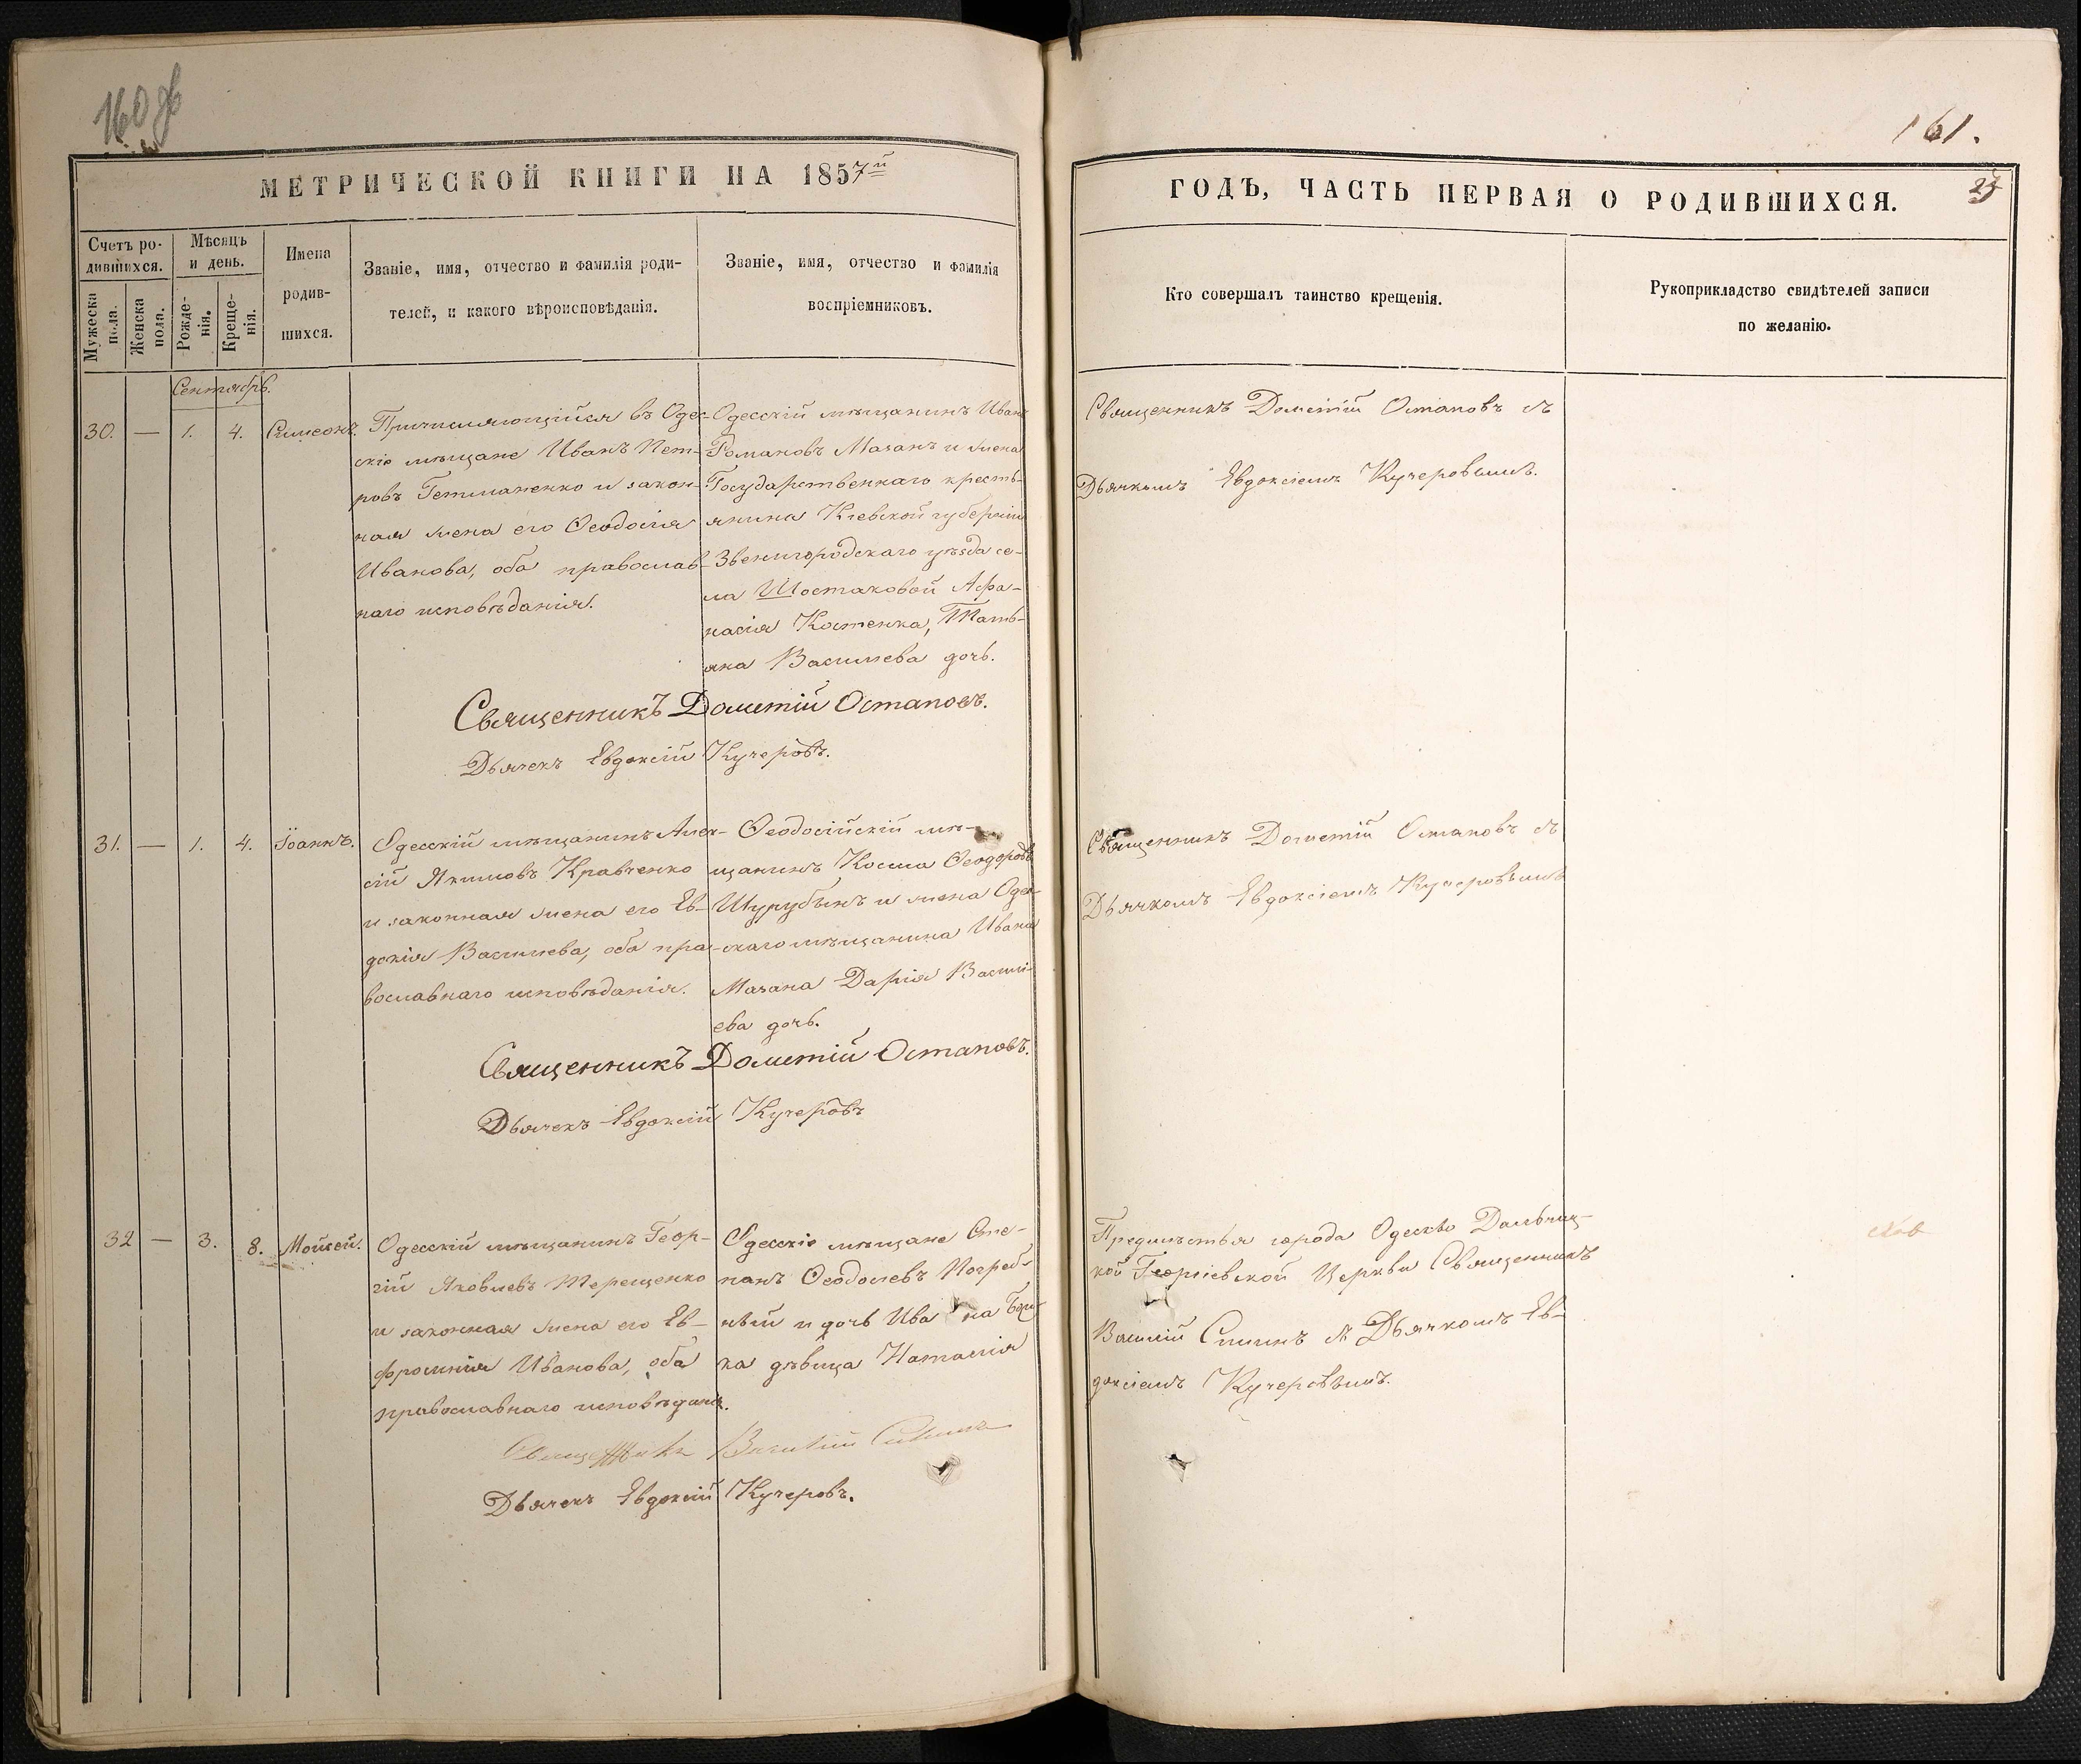 160 об
МЕТРИЧЕСКОЙ КНИГИ НА 1857й
Счетъ ро-
дившихся.
Мужеска
пола.
Женска
пола.
Мѣсяцъ
и день.
Рожде-
нія.
Креще-
нія.
Имена
родив-
шихся.
Званіе, имя, отчество и фамилія роди-
телей, и какого вѣроисповѣданія.
Званіе, имя, отчество и фамилія
воспріемниковъ.
Сентябрь.
30. — 1. 4. Симеонъ.
Причисляющійся въ Одес-
скіе мѣщане Иванъ Пет-
ровъ Гетманенко и закон-
ная жена его Ѳеодосія
Иванова, оба православ-
наго исповѣданія.
Одесскій мѣщанинъ Иванъ
Романовъ Мазанъ и жена
Государственнаго кресть-
янина Кіевской губерніи
Звенигородскаго уѣзда се-
ла Шостаковой Афа-
насія Костенка, Тать-
яна Васильева дочь.
Священникъ Дометій Остаповъ.
Дьячекъ Евдоксій Кучеровъ.
31. — 1. 4. Іоаннъ.
Одесскій мѣщанинъ Алек-
сій Якимовъ Кравченко
и законная жена его Ев-
докія Васильева, оба пра-
вославнаго исповѣданія.
Ѳеодосійскій мѣ-
щанинъ Косма Ѳеодоровъ
Шурубынъ и жена Одес-
скаго мѣщанина Ивана
Мазана Дарія Васильева
ева дочь.
Священникъ Дометій Остаповъ.
Дьячекъ Евдоксій Кучеровъ
32 — 3. 8. Мойсей.
Одесскій мѣщанинъ Геор-
гій Яковлевъ Терещенко
и законная жена его Ев-
фросинія Иванова, оба
православнаго исповѣданія.
Одесскіе мѣщане Сте-
панъ Ѳеодосіевъ Погреб-
ный и дочь Ивана
ка дѣвица Наталія
Священникъ Василій
Дьячекъ Евдоксій Кучеровъ.
161.
ГОДЪ, ЧАСТЬ ПЕРВАЯ О РОДИВШИХСЯ.
Кто совершалъ таинство крещенія.
Рукоприкладство свидѣтелей записи
по желанію.
Священникъ Дометій Остаповъ съ
Дьячкомъ Евдоксіемъ Кучеровымъ.
Священникъ Дометій Остаповъ съ
Дьячкомъ Евдоксіемъ Кучеровымъ
Предмѣстья города Одессы Дальниц-
кой Георгіевской Церкви Священникъ
Василій съ Дьячкомъ Ев-
доксіемъ Кучеровымъ.